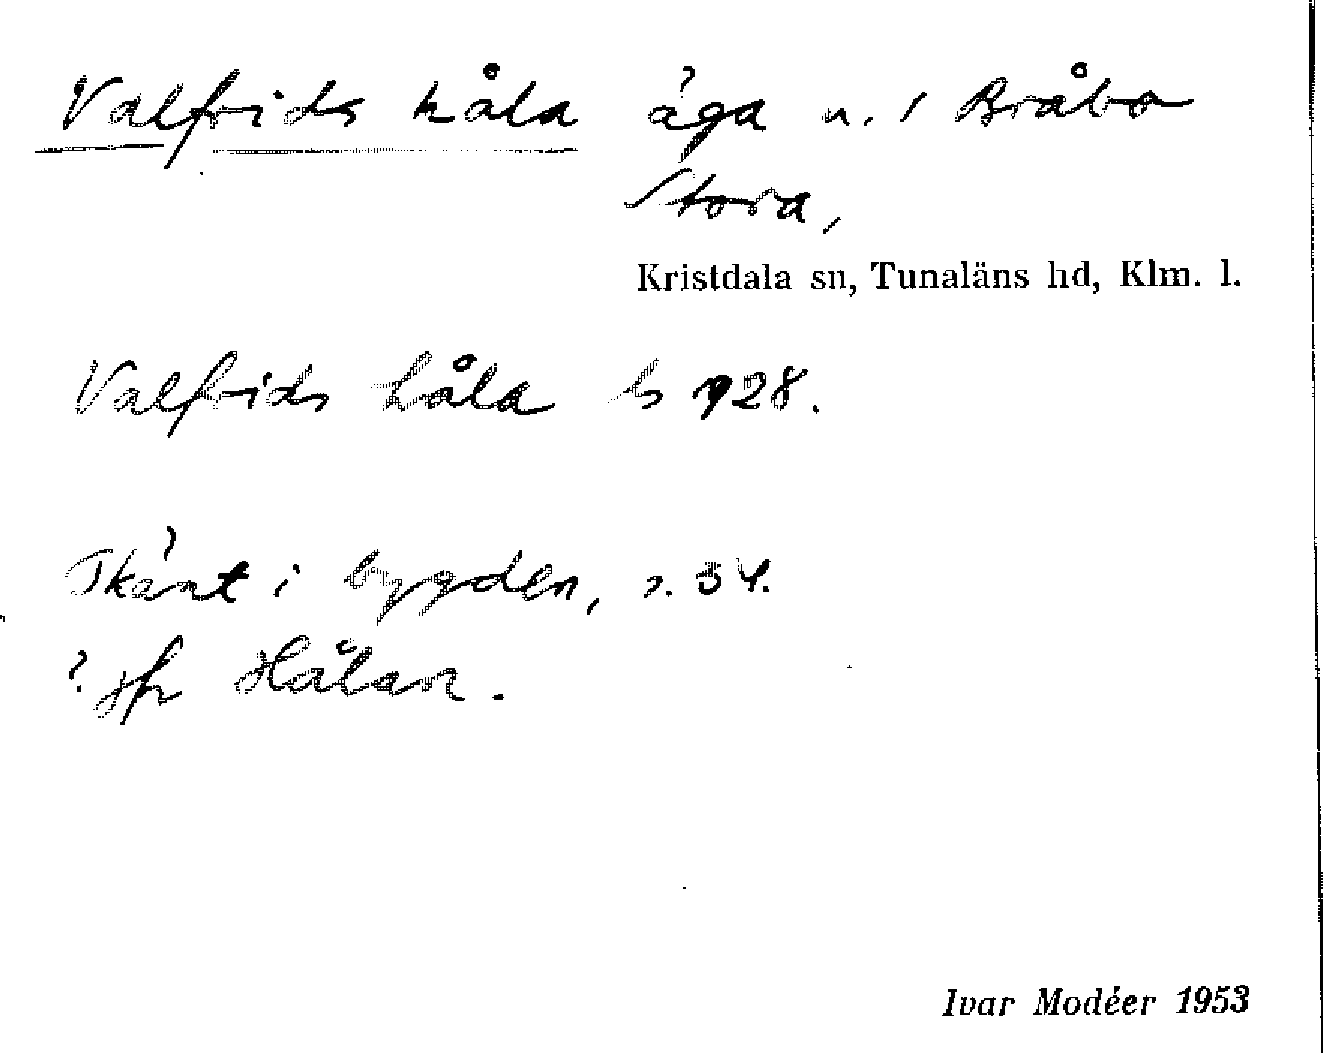 Valfrids håla äga n. 1 Bråbo
Stora,
Kristdala sn, Tunaläns hd, Klm. l.
Valfrids håla b 928.
i bygden, s. 34.
? Jfr Hålan.
Ivar Modéer 1953